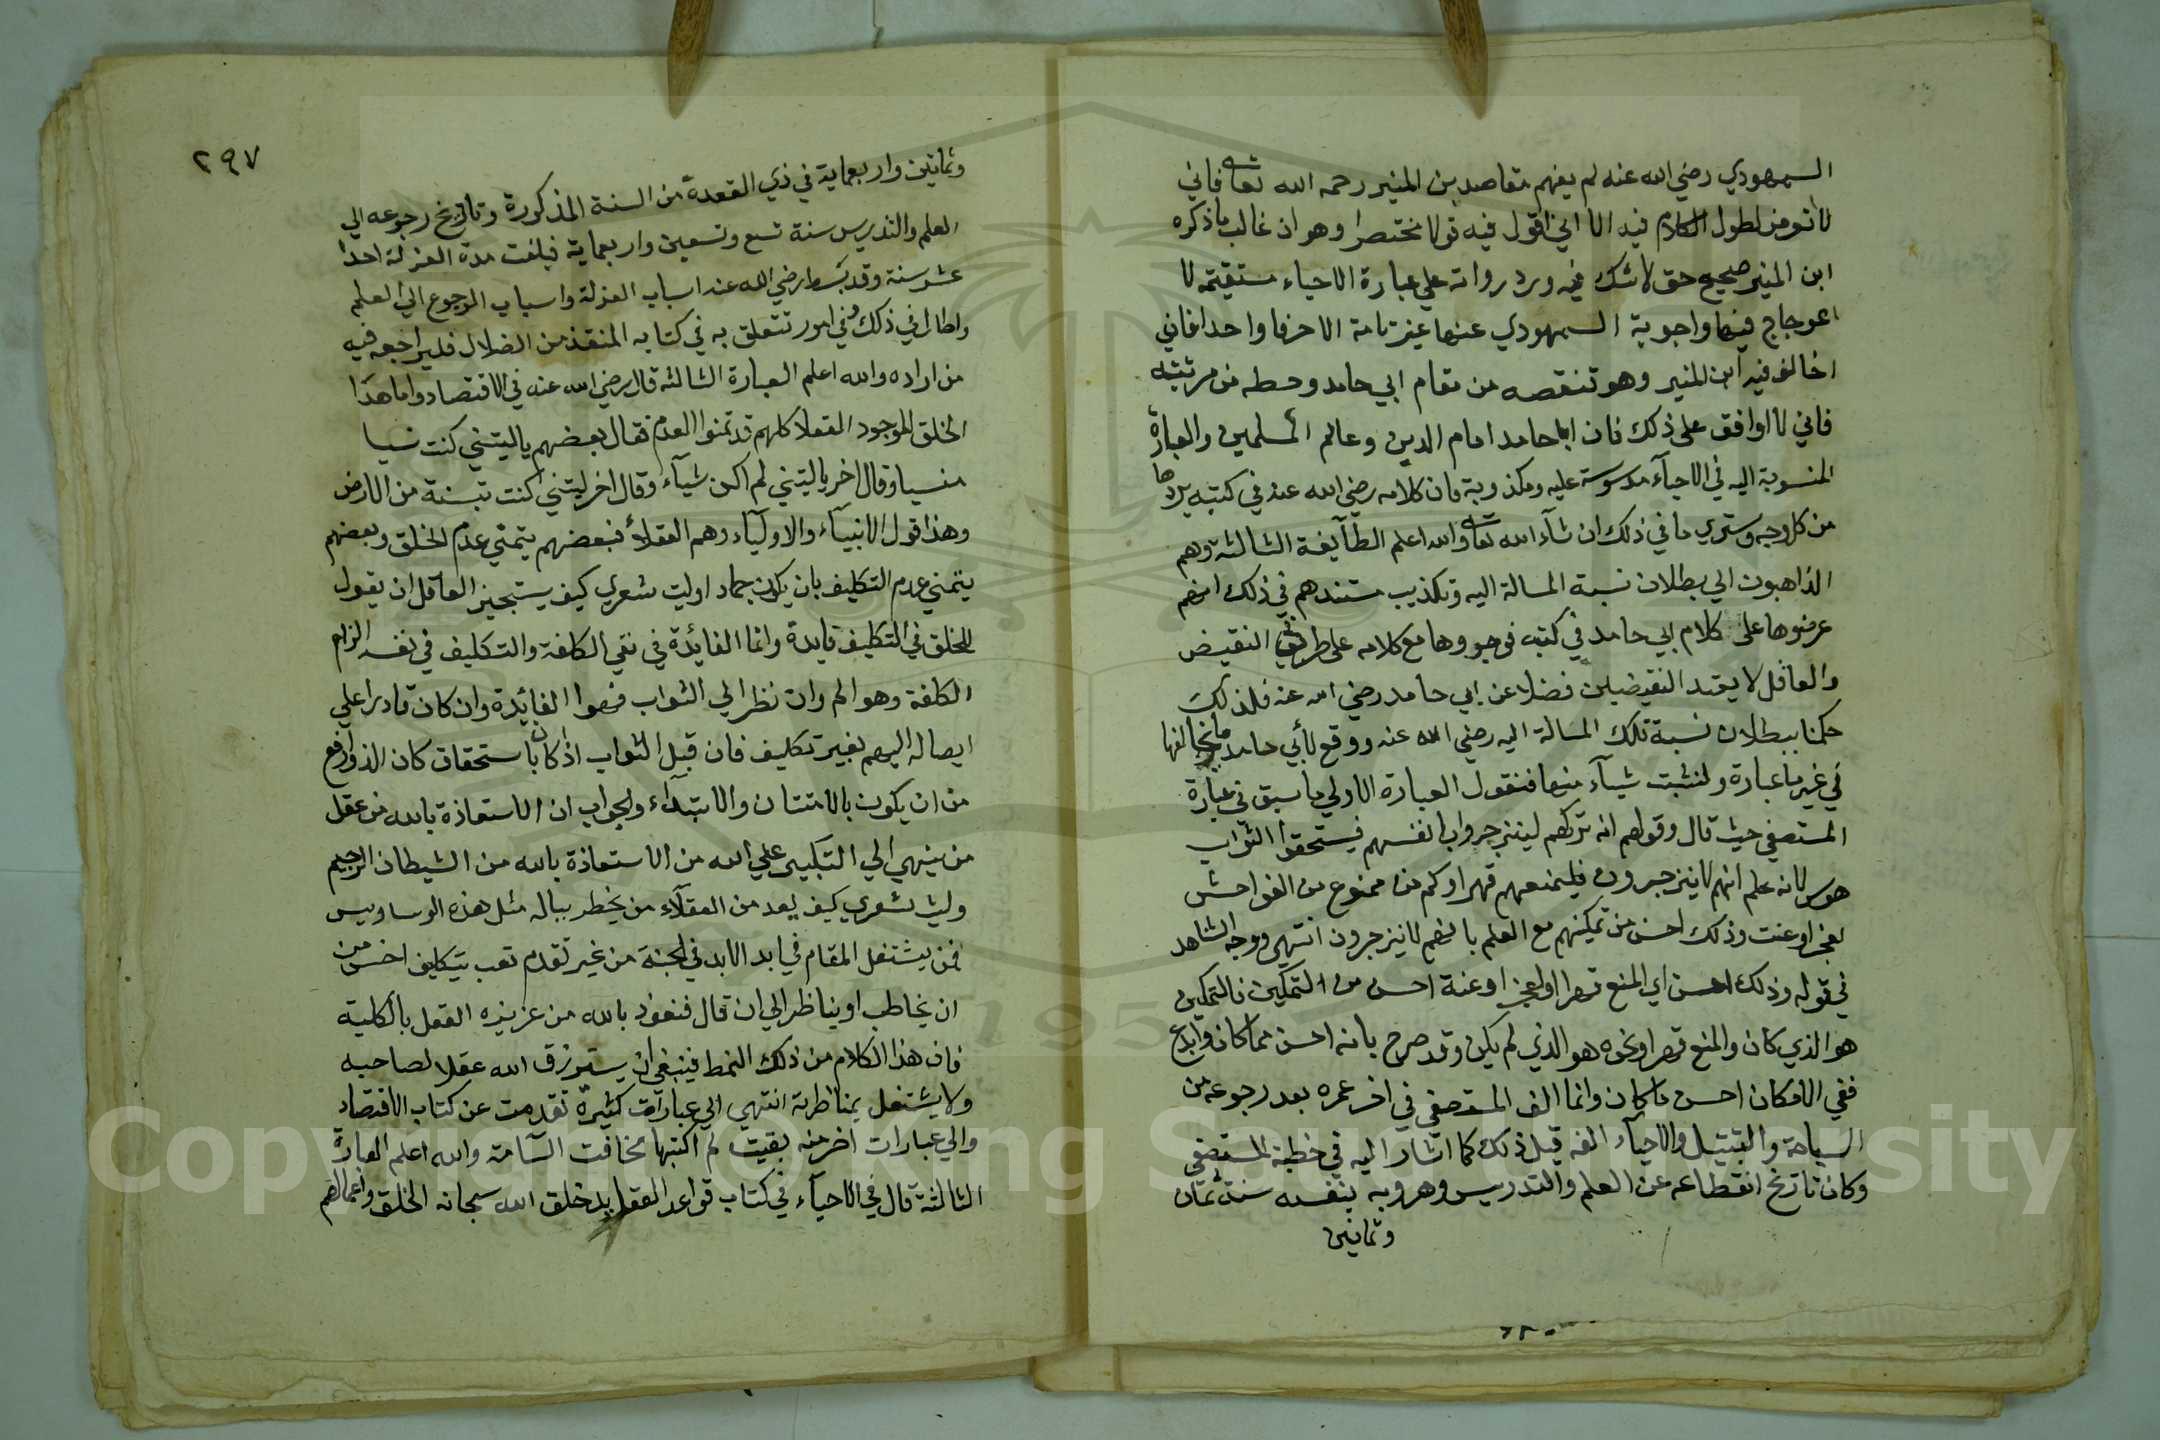 السمهودي رضي الله عنه لم يفهم مقاصد بن المنير رحمه الله تعا فاني
لاتومن لطول الكلام فيه الا اني اقول فيه قولا مختصرا وهو ان غالب ما ذكره
ابن المنير صحيح حق لا شك فيه وردرواته علي عبارة الاحياء مستقيمة لا
اعوجاج فيها واجوبة السمهودي عنها غير تامة الا حرفا واحدا فاني
اخالف فيه ابن المنير وهو تنقصه من مقام ابي حامد وحطه من مرتبته
فاني لا اوافق على ذلك فان ابا حامد امام الدين وعالم المسلمين والعبارة
المنسوبة اليه في الاحيآء مدسوسة عليه ومكذوبة فان كلامه رضي الله عنه في كتبه يردها
من كل وجه وستري ما في ذلك ان شآء الله تعا والله اعلم الطآيفة الثالثة وهم
الذاهبون الي بطلان نسبة المسالة اليه وتكذيب مستندهم في ذلك انهم
عرضوها على كلام ابي حامد في كتبه فوجدوها مع كلامه على طرفي النقيض
والعاقل لا يعتقد النقيضين فضلا عن ابي حامد رضي الله عنه فلذلك
حكمنا ببطلان نسبة تلك المسالة اليه رضي الله عنه ووقع لأبي حامد ما يخالفها
في غير ما عبارة ولنثبت شيآء منها فنقول العبارة الاولي ما سبق في عبارة
المستصفي حيث قال وقولهم انه تركهم لينزجروا بانفسهم فيستحقوا الثواب
هوس لانه علم انهم لا ينزجرون فليمنعهم قهرا وكم من ممنوع من الفواحش
لعجز او عنت وذلك احسن من تمكينهم مع العلم بانهم لا ينزجرون انتهى ووجه الشاهد
في قوله وذلك احسن اي المنع قهرا او لعجز او عنة احسن من التمكين فالتمكين
هو الذي كان والمنع قهرا ونحوه هو الذي لم يكن وقد صرح بانه احسن مما كان وابدع
ففي الامكان احسن مما كان وانما الف المستصفي في اخر عمره بعد رجوعه من
السياحة والتبتيل والاحيآء الفه قبل ذلك كما اشار اليه في خطبة المستصفي
وكان تاريخ انقطاعه عن العلم والتدريس وهروبه بنفسه سنة ثمان
وثمانين
٢٩٧
وثمانين واربعماية في ذي القعدة من السنة المذكورة وتاريخ رجوعه الي
العلم والتدريس سنة تسع وتسعين واربعماية فبلغت مدة العزلة احدا
عشر سنة وقد بسط رضي الله عنه اسباب العزلة واسباب الرجوع الي العلم
واطال في ذلك وفي امور تتعلق به في كتابه المنقذ من الضلال فليراجعه فيه
من اراده والله اعلم العبارة الثالثة قال رضي الله عنه في الاقتصاد واما هذا
الخلق الموجود العقلا كلهم قد تمنوا العدم فقال بعضهم ياليتني كنت نسيا
منسيا وقال اخر ياليتني لم اكن شيآء وقال اخر ليتني كنت تبنة من الارض
وهذا قول الانبيآء والاوليآء وهم العقلاء فبعضهم يتمني عدم الخلق وبعضهم
يتمني عدم التكليف بان يكون جماد اوليت شعري كيف يستجيز العاقل ان يقول
للخلق في التكليف فايدة وانما الفائدة في نفي الكلفة والتكليف في نفسه الزام
الكلفة وهو الم وان نظر الي الثواب فهو الفائدة وان كان قادرا علي
ايصاله اليهم بغير تكليف فان قيل الثواب اذا كان باستحقاق كان الذ وارفع
من ان يكون بالامتنان والابتدآء والجواب ان الاستعاذة بالله من عقل
من ينهي الي التكبر علي الله من الاستعاذة بالله من الشيطان الرجيم
وليت شعري كيف يعد من العقلآء من يخطر بباله مثل هذه الوساويس
فمن يشتغل المقام في ابد الابد في الجنة من غير تقدم تعب بتكليف اخس من
ان يخاطب او يناظر الي ان قال فنعوذ بالله من عزيزه العقل بالكلية
فان هذا الكلام من ذلك النمط فينبغي ان يسترزق الله عقلا لصاحبه
ولا يشتغل بمناظرته انتهي الي عبارات كثيرة تقدمت عن كتاب الاقتصاد
والي عبارات اخر منه بقيت لم اكتبها مخافت السآمة والله اعلم العبارة
الثالثة قال في الاحيآء في كتاب قواعد العقايد خلق الله سبحانه الخلق واعمالهم
Copyright © King Saud University
195